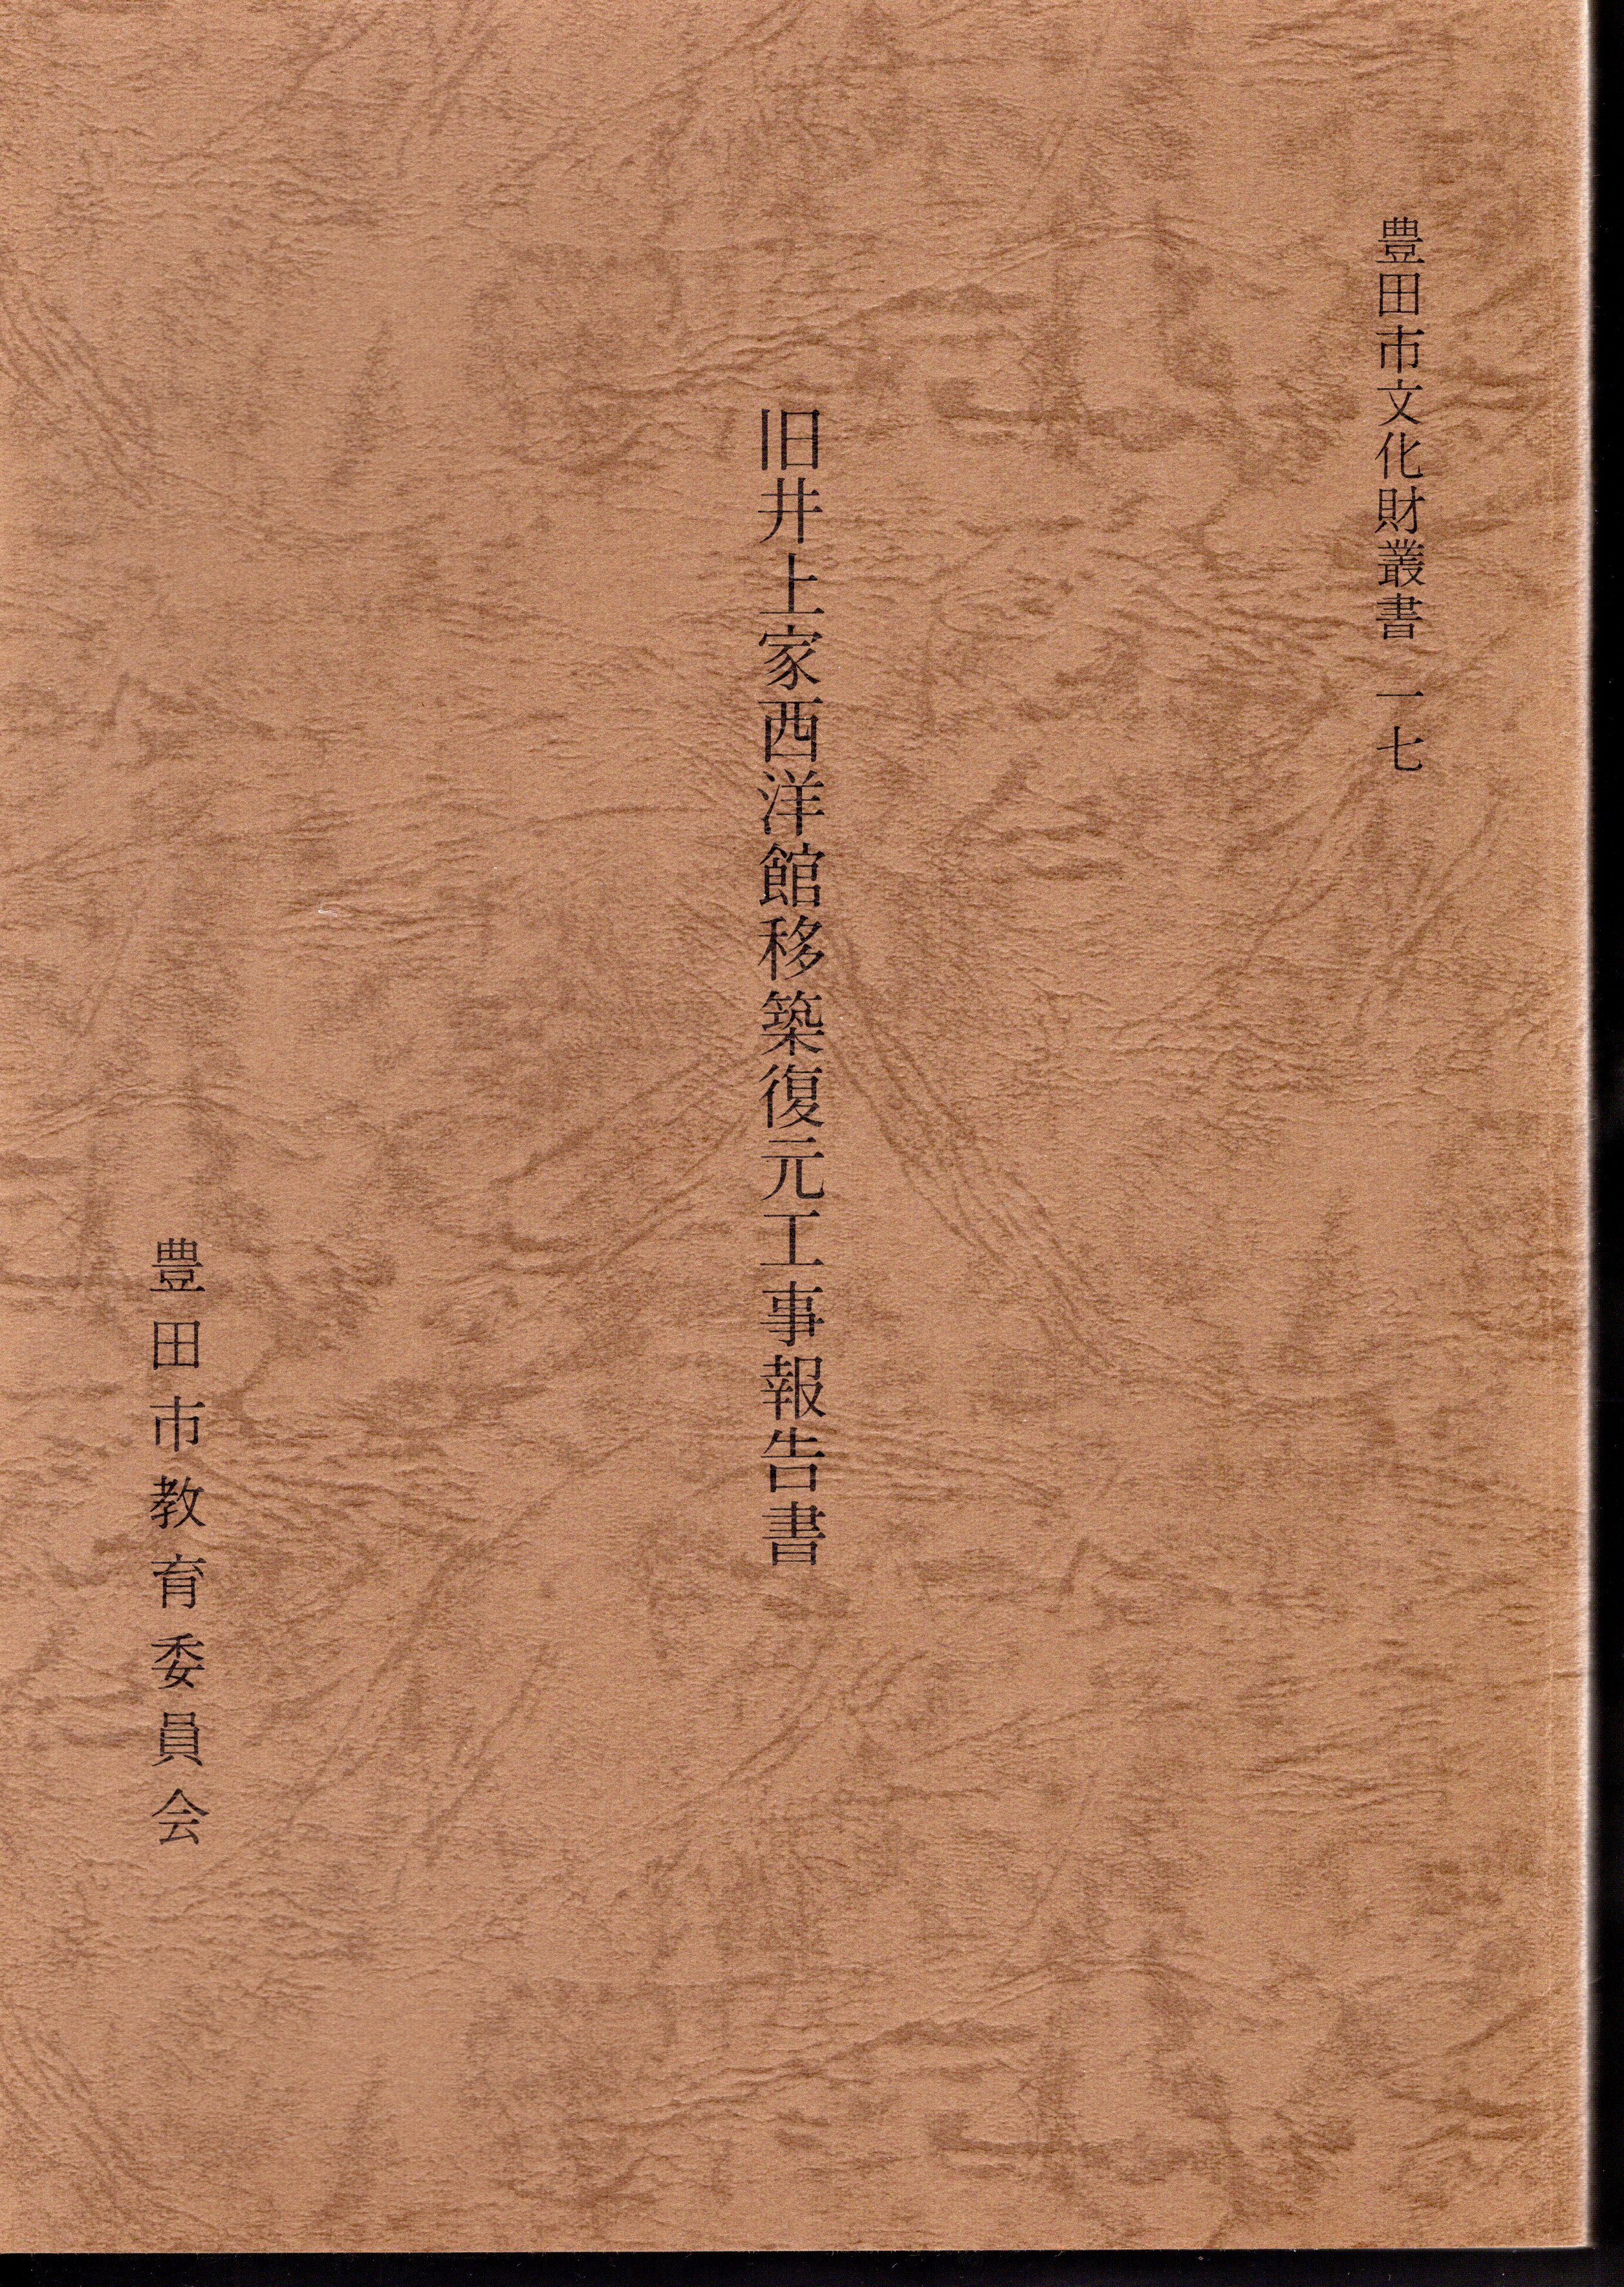 豊田市文化財叢書 一七
旧井上家西洋館移築復元工事報告書
豊田市教育委員会